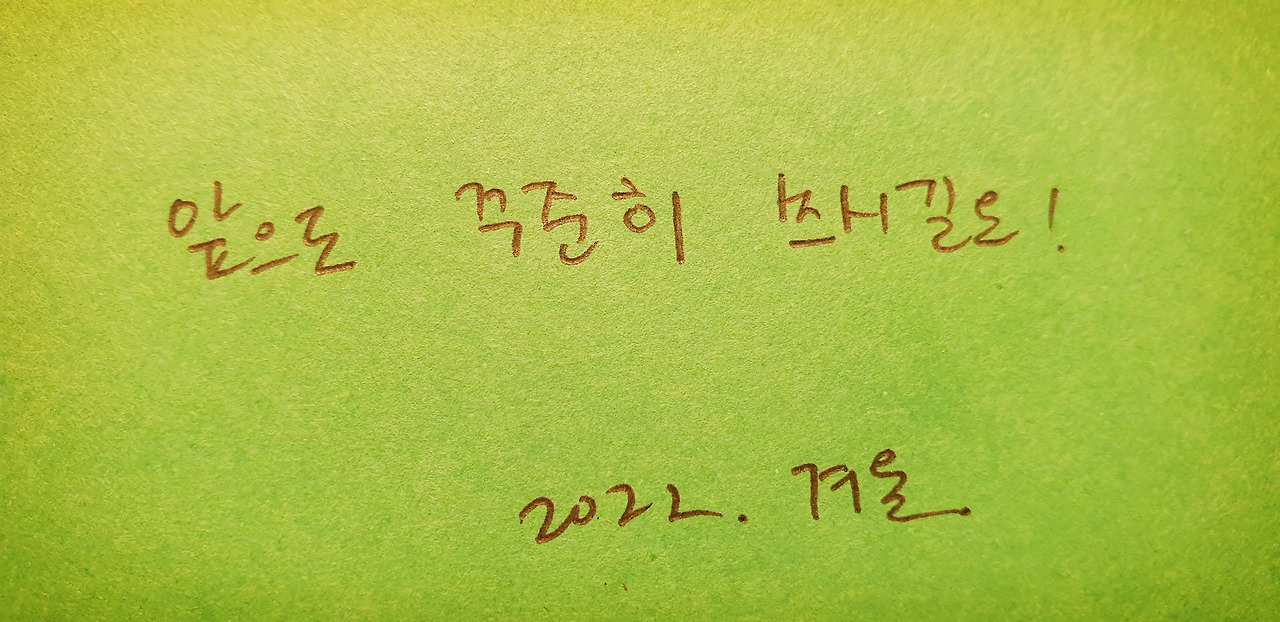 앞으로 꾸준히 쓰시길요!
2022. 겨울.